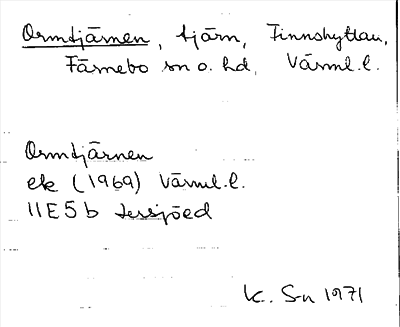 Ormtjärnen, tjärn, Finnshyttan,
Färnebo sn o. hd, Värml. l.
Ormtjärnen
ek (1969) Värml. l.
11E5b
K. Sn 1971